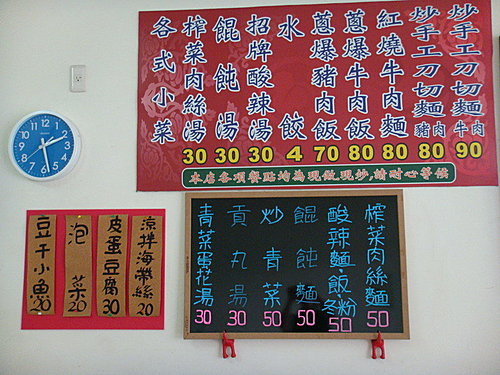 炒手工刀切麵牛肉 90
炒手工刀切麵豬肉 80
紅燒牛肉麵 80
蔥爆牛肉飯 80
蔥爆豬肉飯 70
水餃 4
招牌酸辣湯 30
餛飩湯 30
榨菜肉絲湯 30
各式小菜
本店各項餐點均為現做現炒,請耐心等候
12 1 2 3 4 5 6 7 8 9 10 11
涼拌海帶絲 20
皮蛋豆腐 30
泡菜 20
豆干小魚 30
榨菜肉絲麵 50
酸辣麵·飯 冬粉 50
餛飩麵 50
炒青菜 50
貢丸湯 30
青菜蛋花湯 30